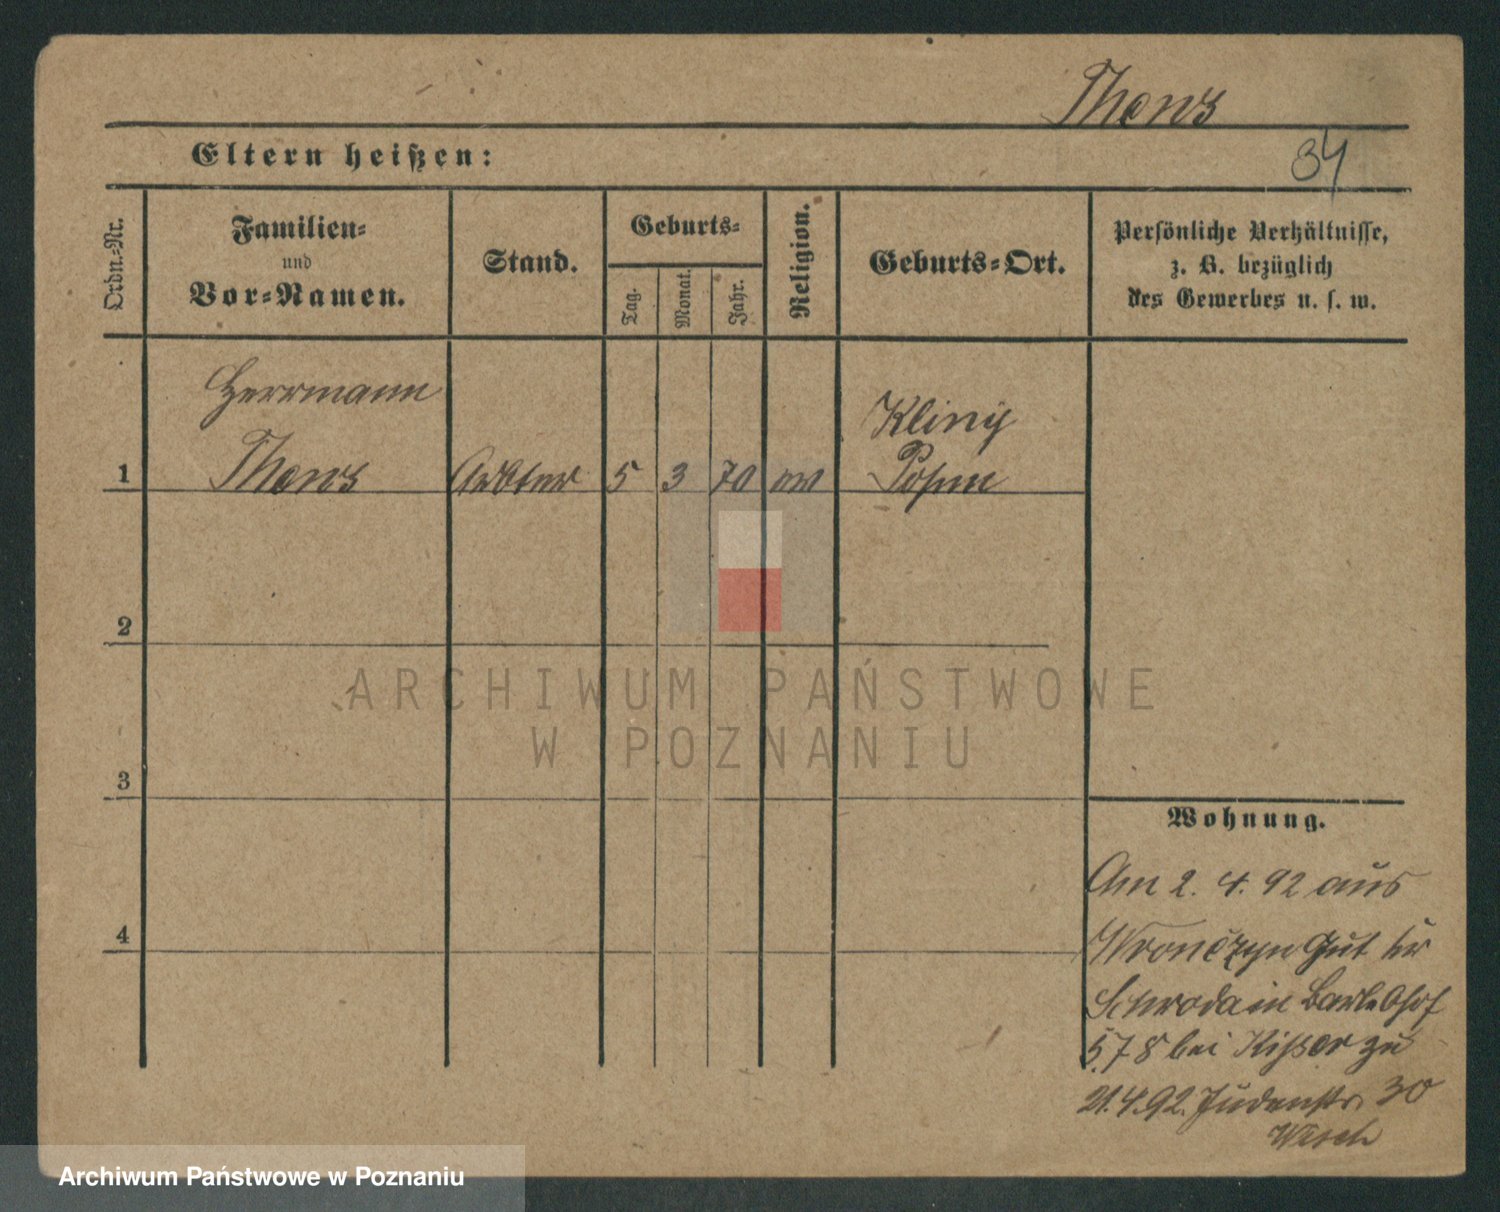 Thons
Eltern heißen:
34
Ordn.-Nr.
Familien-
und
Vor-Namen.
Stand.
Geburts-
Tag.
Monat.
Jahr.
Religion.
Geburts-Ort.
Persönliche Verhältnisse,
z. B. bezüglich
des Gewerbes u. s. w.
Herrmann
Kliny
1 Thons Arbter 5 3 70 ev Posen
2
ARCHIWUM PAŃSTWOWE
W POZNANIU
3
Wohnung.
Am 2. 4. 92 aus
4
Wronczyn Gut kr
Schroda in Bartelshof
578 bei zu
21.4.92. Judenstr. 30
Archiwum Państwowe w Poznaniu